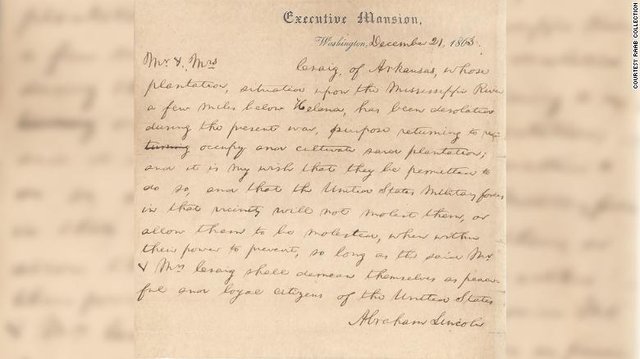 Executive Mansion,
Washington, December 21, 1863.
Mr & Mrs Craig, of Arkansas, whose
plantation, situation upon the Mississippi River
a few miles below Helena, has been desolated
during the present war, purpose returning to
turning occupy and cultivate said plantation;
and it is my wish that they be permitted to
do so, and that the United States Military forces
in that vicinity will not molest them, or
allow them to be molested, when within
their power to prevent, so long as the said Mr.
& Mrs Craig shall demean themselves as peace-
ful and loyal citizens of the United States
Abraham Lincoln
COURTESY RAAB COLLECTION